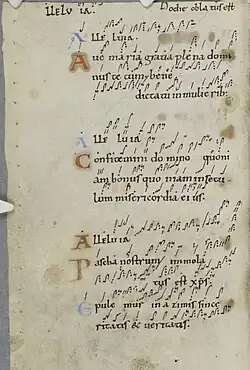 llelu ia. Hodie obla tus est
A lle luia
A ue maria gratia ple na domi
nus te cum bene
dictatu in mulie rib;
A lle lu ia
C onfitemini domino quoni
am bonus quo niam in secu
lum misericordia ei us.
A llelu ia
P ascha nostrum immola
tus est xps
E pule mus in a zimis since
ritatis & ueritatis.